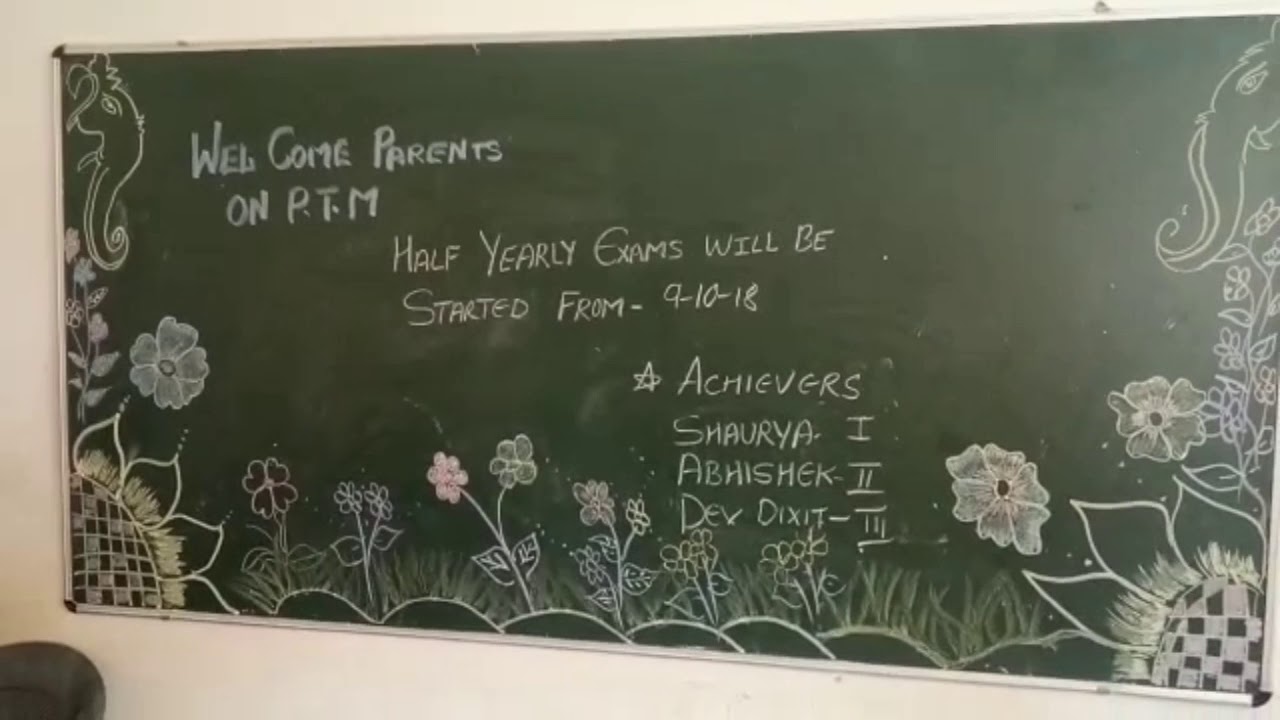 WEL COME PARENTS
ON P.T.M
HALF YEARLY EXAMS WILL BE
STARTED FROM - 9-10-18
☆ ACHIEVERS
SHAURYA- I
ABHISHEK- II
DEV DIXIT- III